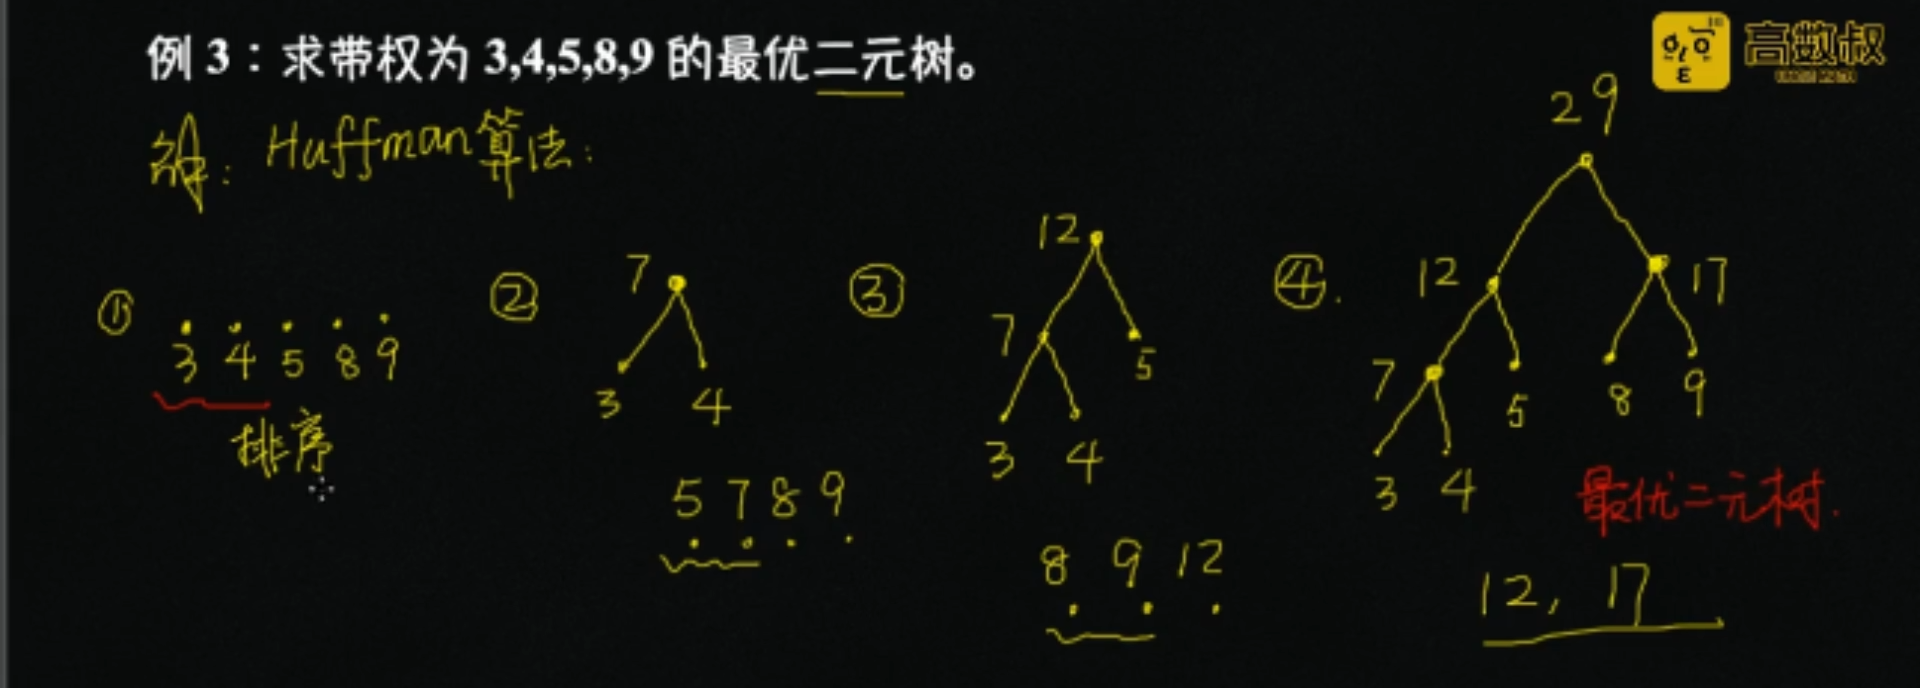 例 3：求带权为 3,4,5,8,9 的最优二元树。
高数叔
解: Huffman算法:
①
3 4 5 8 9
排序
②
7
3 4
5 7 8 9
③
12
7 5
3 4
8 9 12
④.
29
12 17
7 5 8 9
3 4
最优二元树.
12, 17